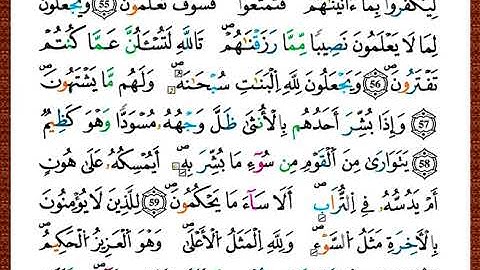 لِيَكْفُرُوا۟ بِمَآ ءَاتَيْنَٰهُمْ ۖ فَتَمَتَّعُوا۟ ۖ فَسَوْفَ تَعْلَمُونَ 55 وَيَجْعَلُونَ
لِمَا لَا يَعْلَمُونَ نَصِيبًا مِّمَّا رَزَقْنَٰهُمْ ۖ تَاللَّهِ لَتُسْـَٔلُنَّ عَمَّا كُنتُمْ
تَفْتَرُونَ ۖ 56 وَيَجْعَلُونَ لِلَّهِ الْبَنَٰتِ سُبْحَٰنَهُۥ ۖ وَلَهُم مَّا يَشْتَهُونَ ۖ
57 وَإِذَا بُشِّرَ أَحَدُهُم بِالْأُنثَىٰ ظَلَّ وَجْهُهُۥ مُسْوَدًّا وَهُوَ كَظِيمٌ ۖ
58 يَتَوَارَىٰ مِنَ الْقَوْمِ مِن سُوٓءِ مَا بُشِّرَ بِهِۦٓ ۖ أَيُمْسِكُهُۥ عَلَىٰ هُونٍ
أَمْ يَدُسُّهُۥ فِي التُّرَابِ ۖ أَلَا سَآءَ مَا يَحْكُمُونَ ۖ 59 لِلَّذِينَ لَا يُؤْمِنُونَ
بِالْأَخِرَةِ مَثَلُ السَّوْءِ ۖ وَلِلَّهِ الْمَثَلُ الْأَعْلَىٰ ۖ وَهُوَ الْعَزِيزُ الْحَكِيمُ ۖ